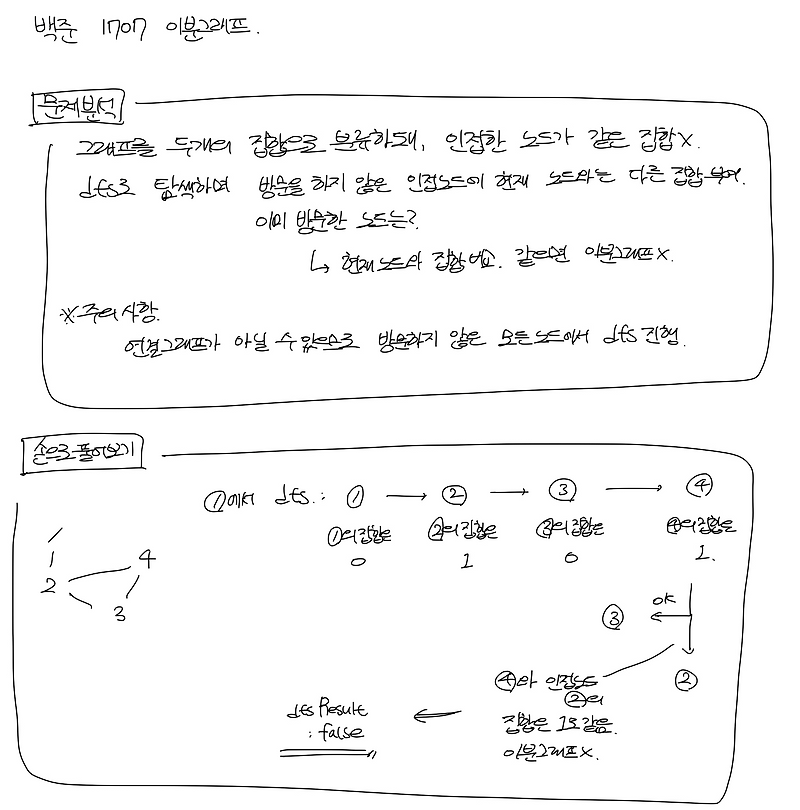 백준 1707 이분그래프.
문제분석
그래프를 두개의 집합으로 분류하되, 인접한 노드가 같은 집합X.
dfs로 탐색하며 방문을 하지 않은 인접노드에 현재 노드와는 다른 집합 부여.
이미 방문한 노드는?
↳ 현재노드와 집합 비교. 같으면 이분그래프X.
※주의사항.
연결그래프가 아닐 수 있으므로 방문하지 않은 모든 노드에서 dfs 진행.
손으로 풀어보기
①에서 dfs.: ① → ② → ③ → ④
①의 집합은 ②의 집합은 ③의 집합은 ④의 집합은
0 1 0 1.
1 4
2
3
OK
③
②
④와 인접노드
②의
집합은 1로 같음.
이분그래프X.
← dfs Result
: false